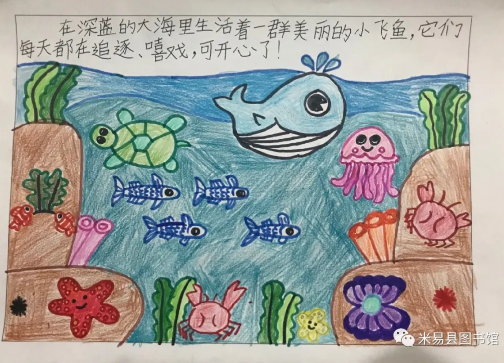 在深蓝的大海里生活着一群美丽的小飞鱼，它们
每天都在追逐、嘻戏，可开心了！
米易县图书馆